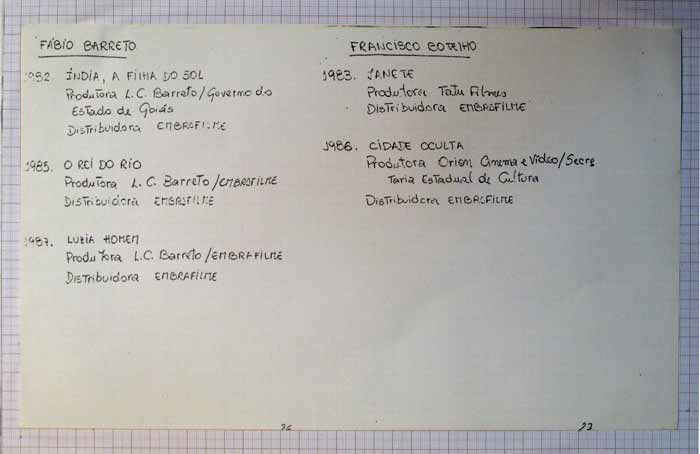 FÁBIO BARRETO
1982. ÍNDIA, A FILHA DO SOL
Produtora L.C. Barreto/Governo do
Estado de Goiás
Distribuidora EMBRAFILME
1985. O REI DO RIO
Produtora L.C. Barreto/EMBRAFILME
Distribuidora EMBRAFILME
1987. LUZIA HOMEM
Produtora L.C. Barreto/EMBRAFILME
Distribuidora EMBRAFILME
FRANCISCO BOTELHO
1983. JANETE
Produtora Tatu Filmes
Distribuidora EMBRAFILME
1986. CIDADE OCULTA
Produtora Orion Cinema e Vídeo/Secre
taria Estadual de Cultura
Distribuidora EMBRAFILME